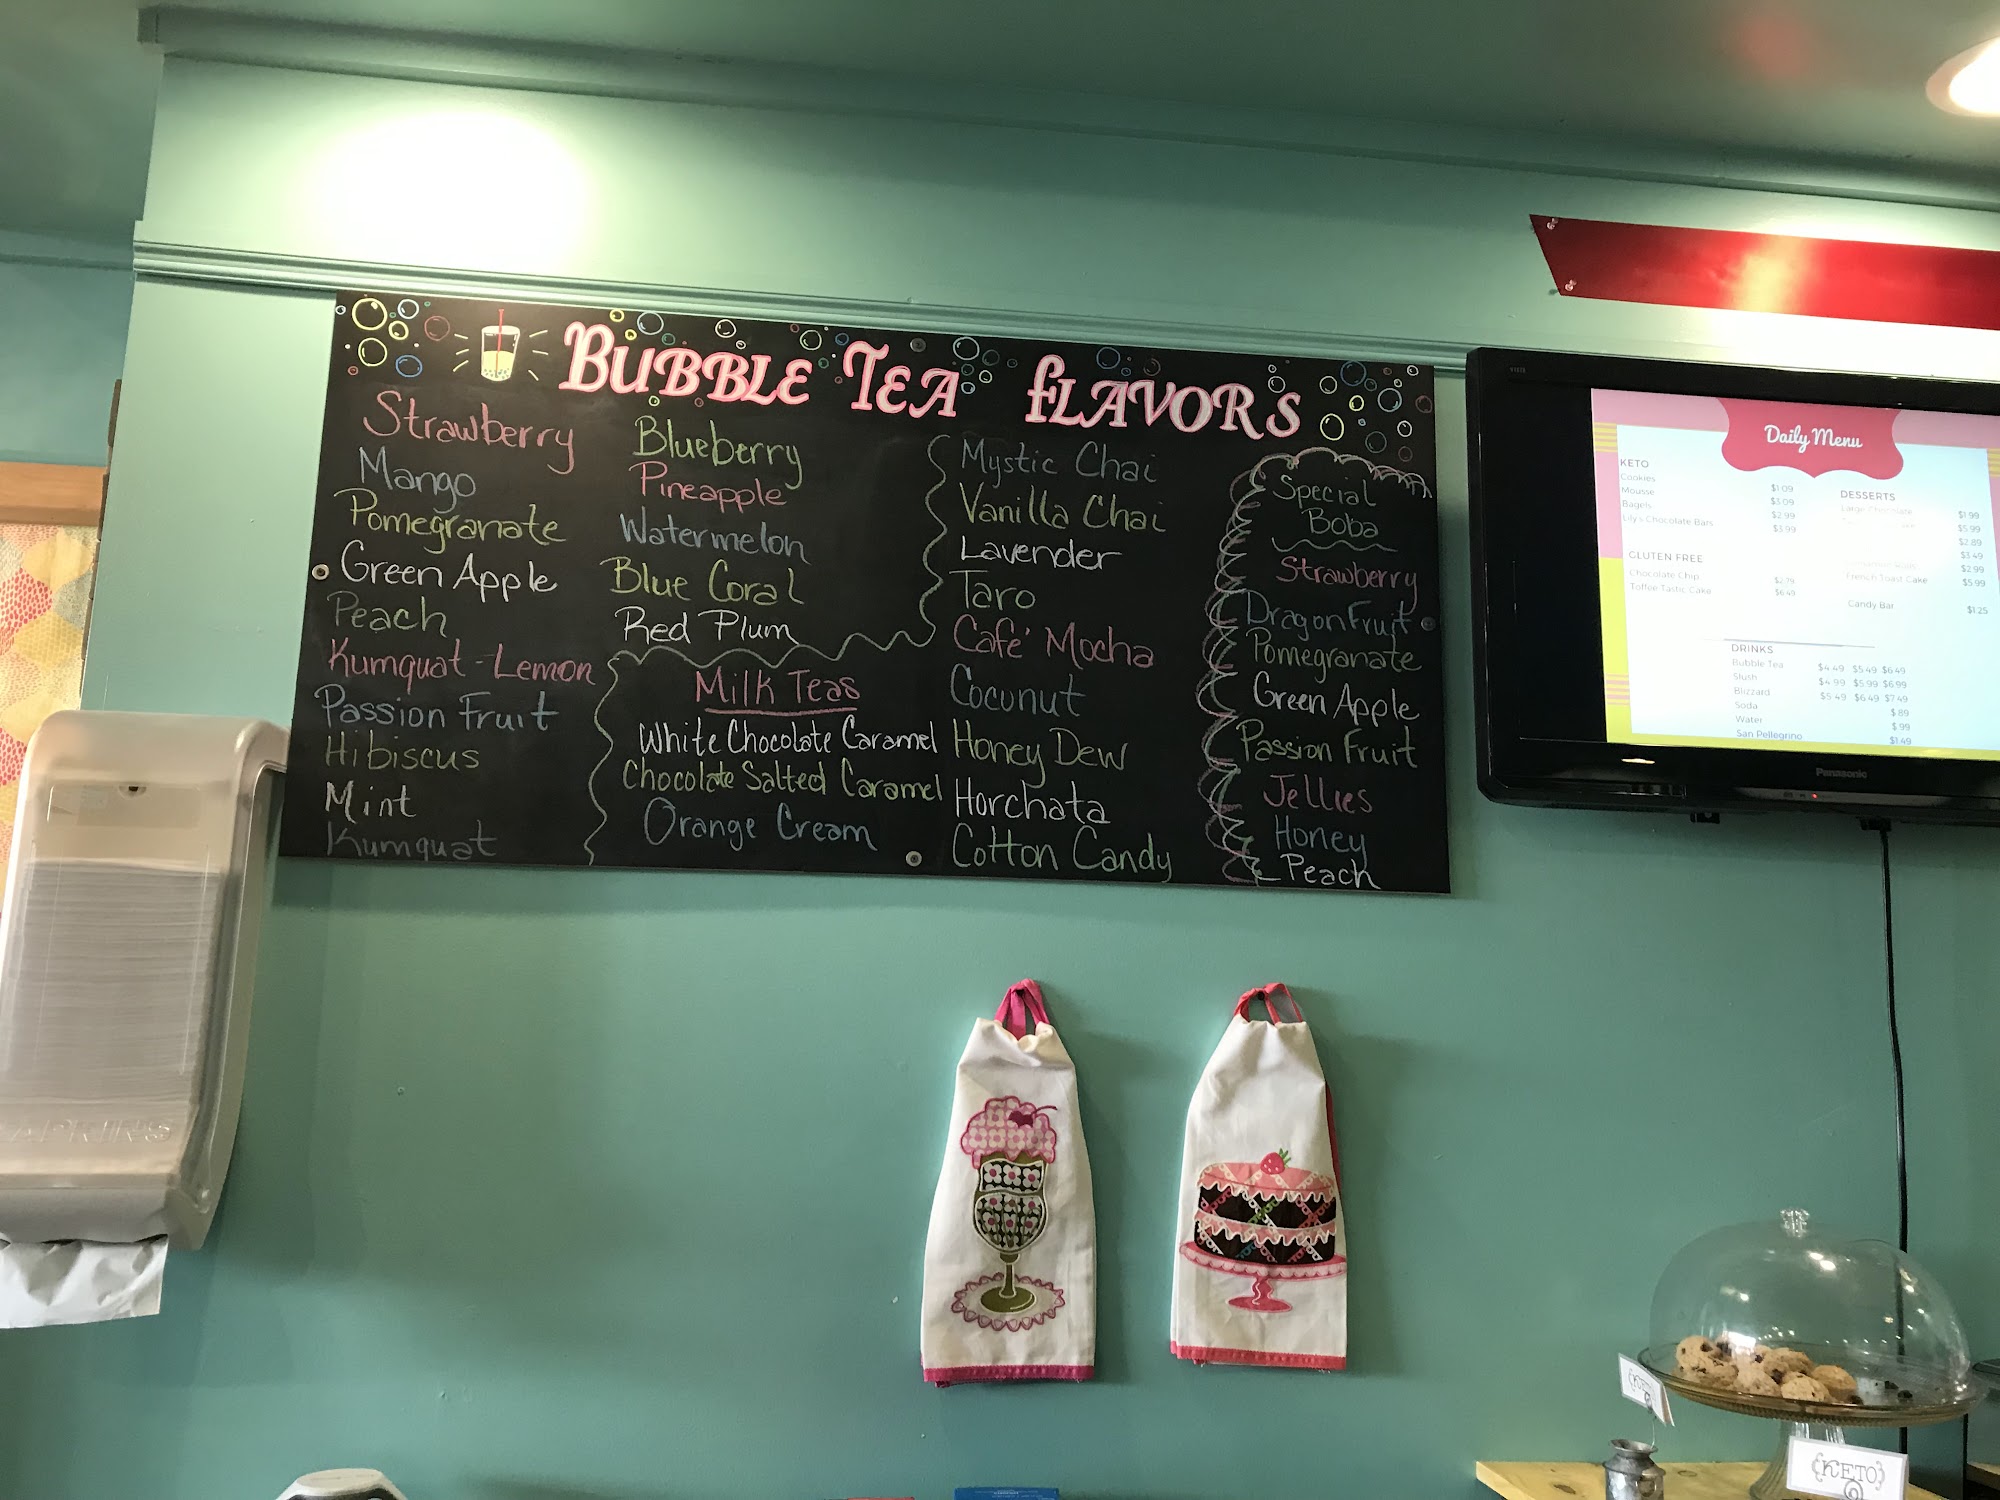 BUBBLE TEA FLAVORS
Strawberry
Mango
Pomegranate
Green Apple
Peach
Kumquat-Lemon
Passion Fruit
Hibiscus
Mint
Kumquat
Blueberry
Pineapple
Watermelon
Blue Coral
Red Plum
Milk Teas
White Chocolate Caramel
Chocolate Salted Caramel
Orange Cream
Mystic Chai
Vanilla Chai
Lavender
Taro
Cafe' Mocha
Cocunut
Honey Dew
Horchata
Cotton Candy
Special
Boba
Strawberry
Dragon Fruit
Pomegranate
Green Apple
Passion Fruit
Jellies
Honey
Peach
Daily Menu
KETO
Cookies $1.09
Mousse $3.09
Bagels $2.99
Lily's Chocolate Bars $3.99
GLUTEN FREE
Chocolate Chip $2.79
Toffee Tastic Cake $6.49
DESSERTS
Large Chocolate $1.99
$5.99
$2.89
$3.49
$2.99
French Toast Cake $5.99
Candy Bar $1.25
DRINKS
Bubble Tea $4.49 $5.49 $6.49
Slush $4.99 $5.99 $6.99
Blizzard $5.49 $6.49 $7.49
Soda $.89
Water $.99
San Pellegrino $1.49
Panasonic
NAPKINS
KETO
KETO